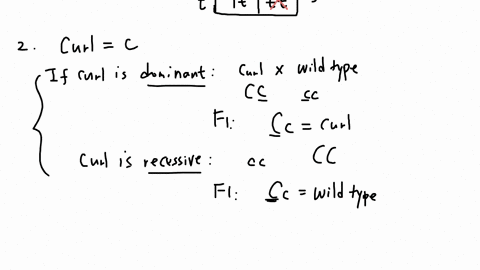 t Tt tt
2. Curl = c
If curl is dominant: curl x wild type
CC cc
F1: Cc = curl
Curl is recussive: cc CC
F1: Cc = wild type